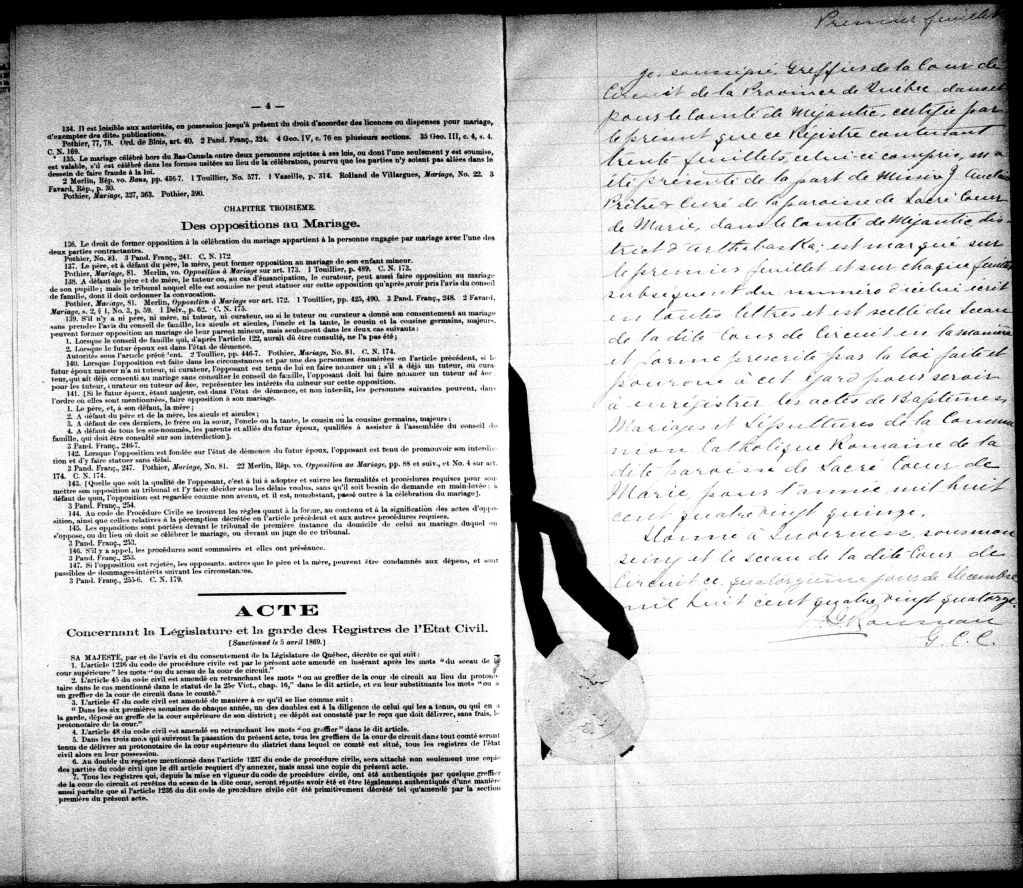 — 4 —
134. Il est loisible aux autorités, en possession jusqu'à présent du droit d'accorder des licences ou dispenses pour mariage,
d'exempter des dites publications.
Pothier, 77, 78. Ord. de Blois, art. 40. 2 Pand. Franç., 224. 4 Geo. IV, c. 76 en plusieurs sections. 35 Geo. III, c. 4, s. 4.
C. N. 169.
135. Le mariage célébré hors du Bas-Canada entre deux personnes sujettes à ses lois, ou dont l'une seulement y est soumise,
est valable, s'il est célébré dans les formes usitées au lieu de la célébration, pourvu que les parties n'y soient pas allées dans le
dessein de faire fraude à la loi.
2 Merlin, Rép. vo. Bans, pp. 436-7. 1 Toullier, No. 577. 1 Vazeille, p. 314. Rolland de Villargues, Mariage, No. 22. 3
Favard, Rép., p. 30.
Pothier, Mariage, 327, 363. Pothier, 390.
CHAPITRE TROISIÈME.
Des oppositions au Mariage.
136. Le droit de former opposition à la célébration du mariage appartient à la personne engagée par mariage avec l'une des
deux parties contractantes.
Pothier, No. 81. 3 Pand. Franç., 241. C. N. 172
137. Le père, et à défaut du père, la mère, peut former opposition au mariage de son enfant mineur.
Pothier, Mariage, 81. Merlin, vo. Opposition à Mariage sur art. 173. 1 Touillier, p. 489. C. N. 173.
138. A défaut de père et de mère, le tuteur ou, au cas d'émancipation, le curateur, peut aussi faire opposition au mariage
de son pupille; mais le tribunal auquel elle est soumise ne peut statuer sur cette opposition qu'après avoir pris l'avis du conseil
de famille, dont il doit ordonner la convocation.
Pothier, Mariage, 81. Merlin, Opposition à Mariage sur art. 172. 1 Touillier, pp. 425, 490. 3 Pand. Franç., 248. 2 Favard,
Mariage, s. 2, § 1, No. 3, p. 59. 1 Delv., p. 62. C. N. 175.
139. S'il n'y a ni père, ni mère, ni tuteur, ni curateur, ou si le tuteur ou curateur a donné son consentement au mariage
sans prendre l'avis du conseil de famille, les aieuls et aieules, l'oncle et la tante, le cousin et la cousine germains, majeurs,
peuvent former opposition au mariage de leur parent mineur, mais seulement dans les deux cas suivants:
1. Lorsque le conseil de famille qui, d'après l'article 122, aurait dû être consulté, ne l'a pas été;
2. Lorsque le futur époux est dans l'état de démence.
Autorités sous l'article précédent. 2 Touillier, pp. 446-7. Pothier, Mariage, No. 81. C. N. 174.
140. Lorsque l'opposition est faite dans les circonstances et par une des personnes énumérées en l'article précédent, si le
futur époux mineur n'a ni tuteur, ni curateur, l'opposant est tenu de lui en faire nommer un; s'il a déjà un tuteur, ou cura-
teur, qui ait déjà consenti au mariage sans consulter le conseil de famille, l'opposant doit lui faire nommer un tuteur ad hoc
pour les tuteur, curateur ou tuteur ad hoc, représenter les intérêts du mineur sur cette opposition.
141. [Si le futur époux, étant majeur, est dans l'état de démence, et non interdit, les personnes suivantes peuvent, dans
l'ordre où elles sont mentionnées, faire opposition à son mariage.
1. Le père, et, à son défaut, la mère;
2. A défaut du père et de la mère, les aieuls et aieules;
3. A défaut de ces derniers, le frère ou la sœur, l'oncle ou la tante, le cousin ou la cousine germains, majeurs;
4. A défaut de tous les sus-nommés, les parents et alliés du futur époux, qualifiés à assister à l'assemblée du conseil de
famille, qui doit être consulté sur son interdiction].
3 Pand. Franç., 246-7.
142. Lorsque l'opposition est fondée sur l'état de démence du futur époux, l'opposant est tenu de promouvoir son interdic-
tion et d'y faire statuer sans délai.
3 Pand. Franç., 247. Pothier, Mariage, No. 81. 22 Merlin, Rép. vo. Opposition au Mariage, pp. 88 et suiv., et No. 4 sur art.
174. C. N. 174.
143. [Quelle que soit la qualité de l'opposant, c'est à lui à adopter et suivre les formalités et procédures requises pour sou-
mettre son opposition au tribunal et l'y faire décider sous les délais voulus, sans qu'il soit besoin de demande en main-levée; à
défaut de quoi, l'opposition est regardée comme non avenu, et il est, nonobstant, passé outre à la célébration du mariage].
3 Pand. Franç., 254.
144. Au code de Procédure Civile se trouvent les règles quant à la forme, au contenu et à la signification des actes d'oppo-
sition, ainsi que celles relatives à la péremption décrétée en l'article précédent et aux autres procédures requises.
145. Les oppositions sont portées devant le tribunal de première instance du domicile de celui au mariage duquel on
s'oppose, ou du lieu où doit se célébrer le mariage, ou devant un juge de ce tribunal.
3 Pand. Franç., 253.
146. S'il y a appel, les procédures sont sommaires et elles ont préséance.
3 Pand. Franç., 253.
147. Si l'opposition est rejetée, les opposants, autres que le père et la mère, peuvent être condamnés aux dépens, et sont
passibles de dommages-intérêts suivant les circonstances.
3 Pand. Franç., 255-6. C. N. 179.
ACTE
Concernant la Législature et la garde des Registres de l'Etat Civil.
[Sanctionné le 5 avril 1869.]
SA MAJESTÉ, par et de l'avis et du consentement de la Législature de Québec, décrète ce qui suit:
1. L'article 1236 du code de procédure civile est par le présent acte amendé en insérant après les mots "du sceau de la
cour supérieure" les mots "ou du sceau de la cour de circuit."
2. L'article 45 du code civil est amendé en retranchant les mots "ou au greffier de la cour de circuit au lieu du protono-
taire dans le cas mentionné dans le statut de la 25e Vict., chap. 16," dans le dit article, et en leur substituant les mots "ou à
un greffier de la cour de circuit dans le comté."
3. L'article 47 du code civil est amendé de manière à ce qu'il se lise comme suit:
"Dans les six premières semaines de chaque année, un des doubles est à la diligence de celui qui les a tenus, ou qui en a
la garde, déposé au greffe de la cour supérieure de son district; ce dépôt est constaté par le reçu que doit délivrer, sans frais, le
protonotaire de la cour."
4. L'article 48 du code civil est amendé en retranchant les mots "ou greffier" dans le dit article.
5. Dans les trois mois qui suivront la passation du présent acte, tous les greffiers de la cour de circuit dans tout comté seront
tenus de délivrer au protonotaire de la cour supérieure du district dans lequel ce comté est situé, tous les registres de l'état
civil alors en leur possession.
6. Au double du registre mentionné dans l'article 1237 du code de procédure civile, sera attaché non seulement une copie
des parties du code civil que le dit article requiert d'y annexer, mais aussi une copie du présent acte.
7. Tous les registres qui, depuis la mise en vigueur du code de procédure civile, ont été authentiqués par quelque greffier
de la cour de circuit et revêtus du sceau de la dite cour, seront réputés avoir été et être légalement authentiqués d'une manière
aussi parfaite que si l'article 1236 du dit code de procédure civile eût été primitivement décrété tel qu'amendé par la section
première du présent acte.
Premier feuillet
Je, soussigné, Greffier de la Cour de
Circuit de la Province de Québec, dans et
pour le Comté de Mégantic, certifie par
le présent que ce Registre contenant
trente feuillets, celui-ci compris, m'a
été présenté de la part de Messire J Auclair
Prêtre & Curé de la paroisse de Sacré Coeur
de Marie, dans le Comté de Mégantic, dis-
trict d'Arthabaska; est marqué sur
le premier feuillet et sur chaque feuillet
subséquent du numéro d'icelui écrit
en toutes lettres et est scellé du Sceau
de la dite Cour de Circuit en la manière
& forme prescrite par la loi faite et
pourvue à cet égard pour servir
à enregistrer les actes de Baptêmes,
Mariages et Sépultures de la Commu
nion Catholique Romaine de la
dite paroisse de Sacré Coeur de
Marie, pour l'année mil huit
cent quatre vingt quinze.
Donné à Inverness, sous mon
seing et le sceau de la dite Cour de
Circuit ce quatorzième jour de Décembre
mil huit cent quatre vingt quatorze.
G. C. C.